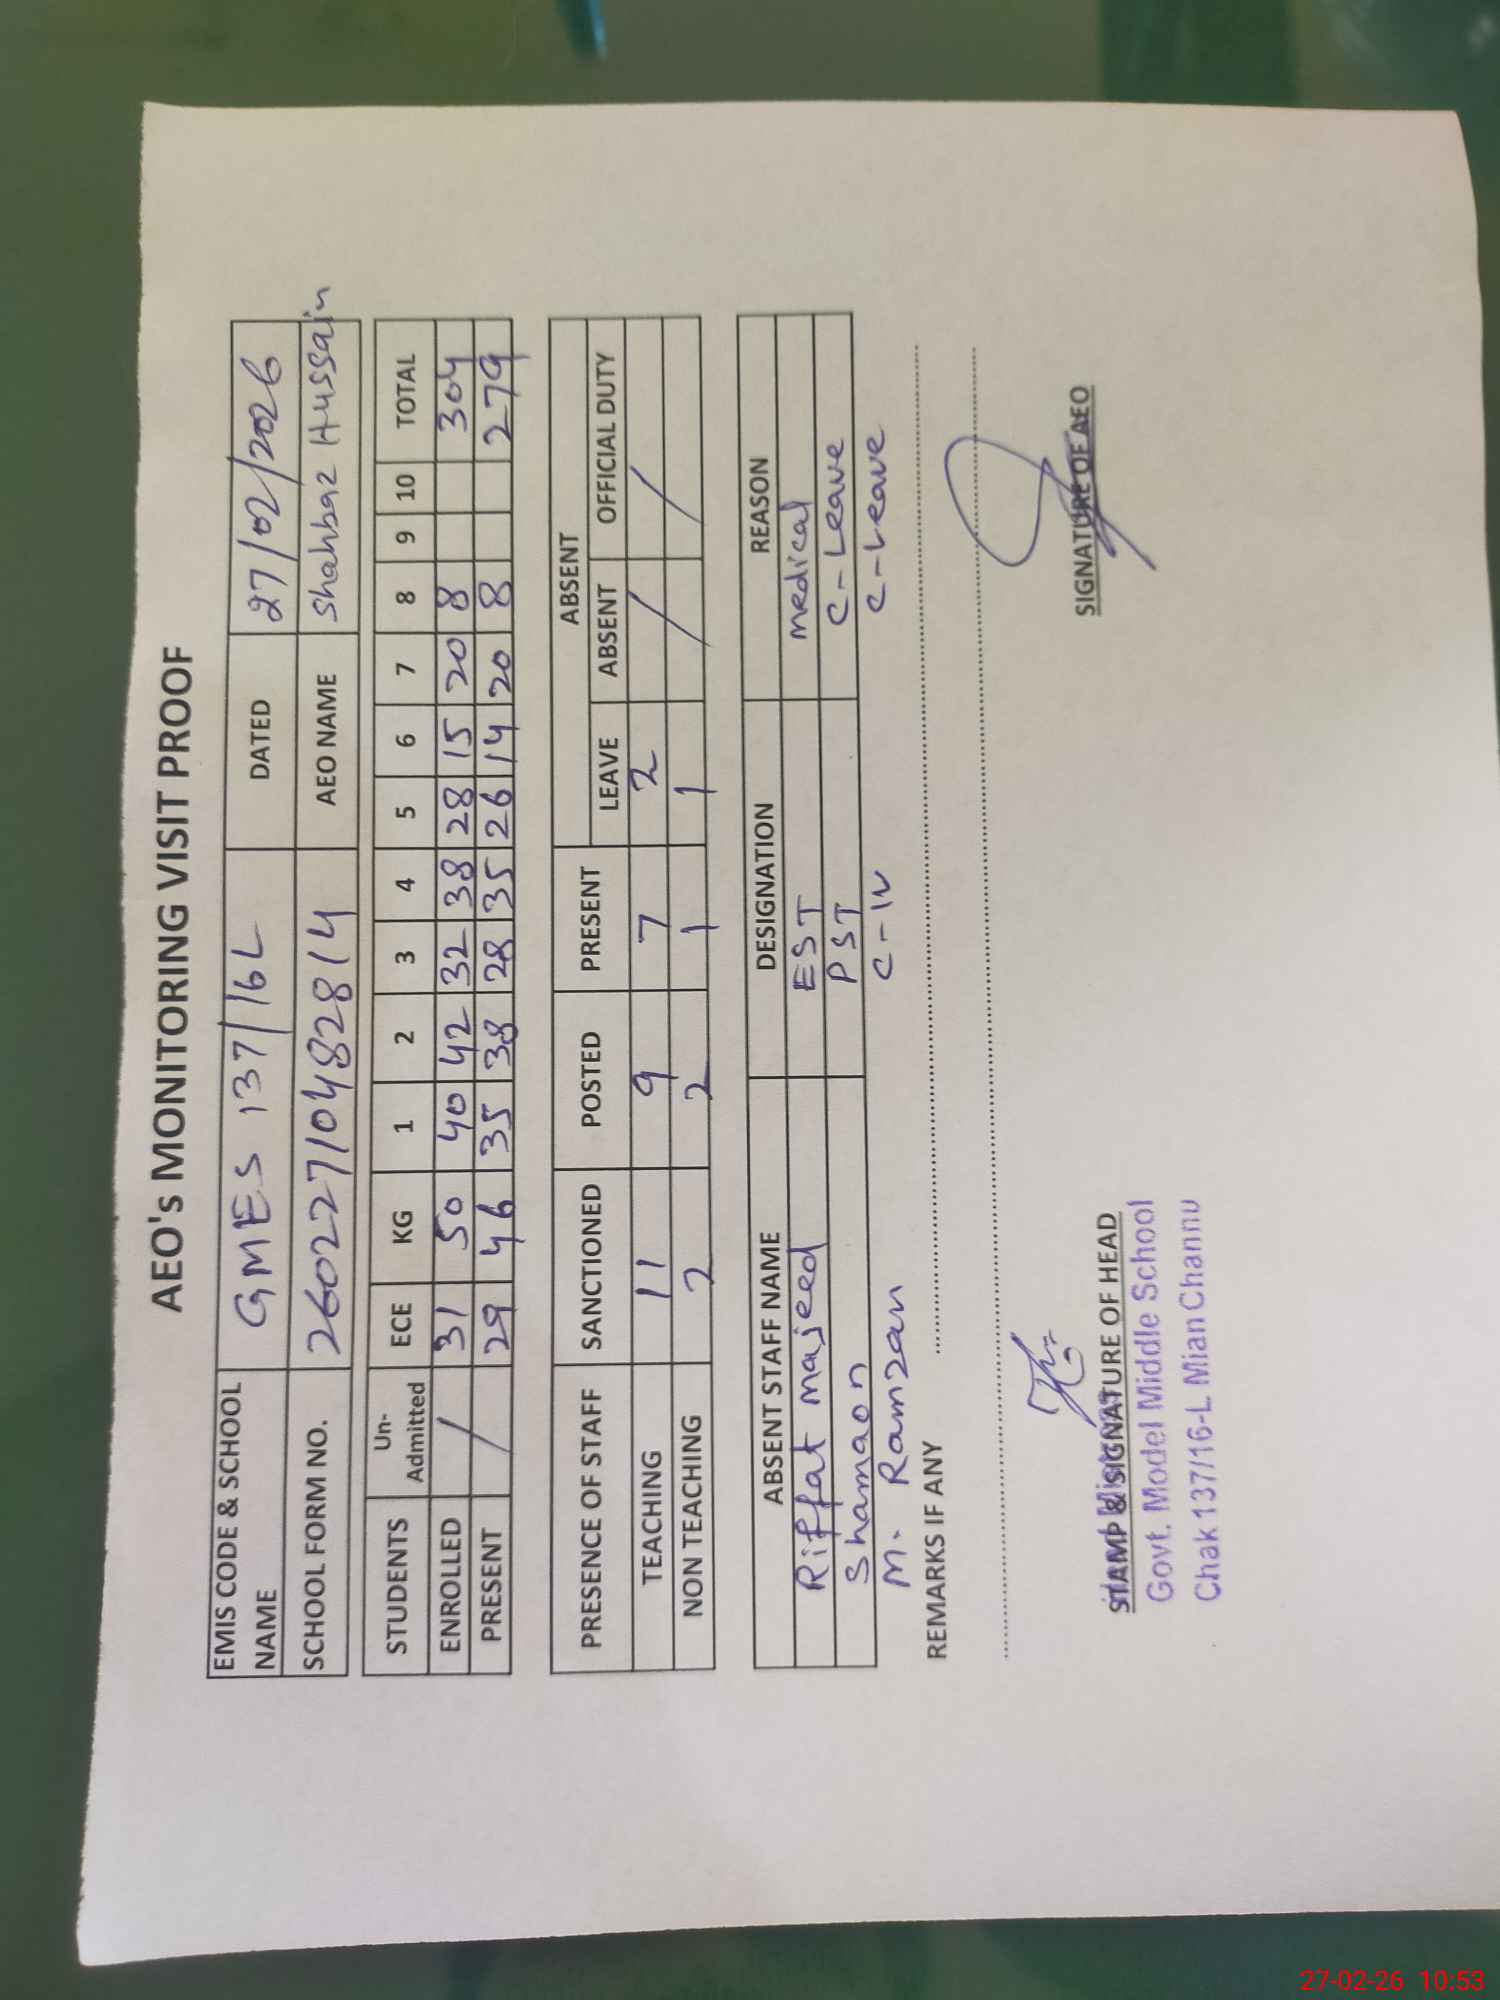 AEO's MONITORING VISIT PROOF
EMIS CODE & SCHOOL NAME GMES 137/16L DATED 27/02/2026
SCHOOL FORM NO. 26022710482814 AEO NAME Shahbaz Hussain
STUDENTS Un-Admitted ECE KG 1 2 3 4 5 6 7 8 9 10 TOTAL
ENROLLED / 31 50 40 42 32 38 28 15 20 8 304
PRESENT / 29 46 35 38 28 35 26 14 20 8 279
PRESENCE OF STAFF SANCTIONED POSTED PRESENT ABSENT
LEAVE ABSENT OFFICIAL DUTY
TEACHING 11 9 7 2 / /
NON TEACHING 2 2 1 1 / /
ABSENT STAFF NAME DESIGNATION REASON
Riffat majeed EST medical
Shamaon PST C-Leave
M. Ramzan C-IV C-Leave
REMARKS IF ANY
STAMP & SIGNATURE OF HEAD SIGNATURE OF AEO
Govt. Model Middle School
Chak 137/16-L Mian Channu
27-02-26 10:53